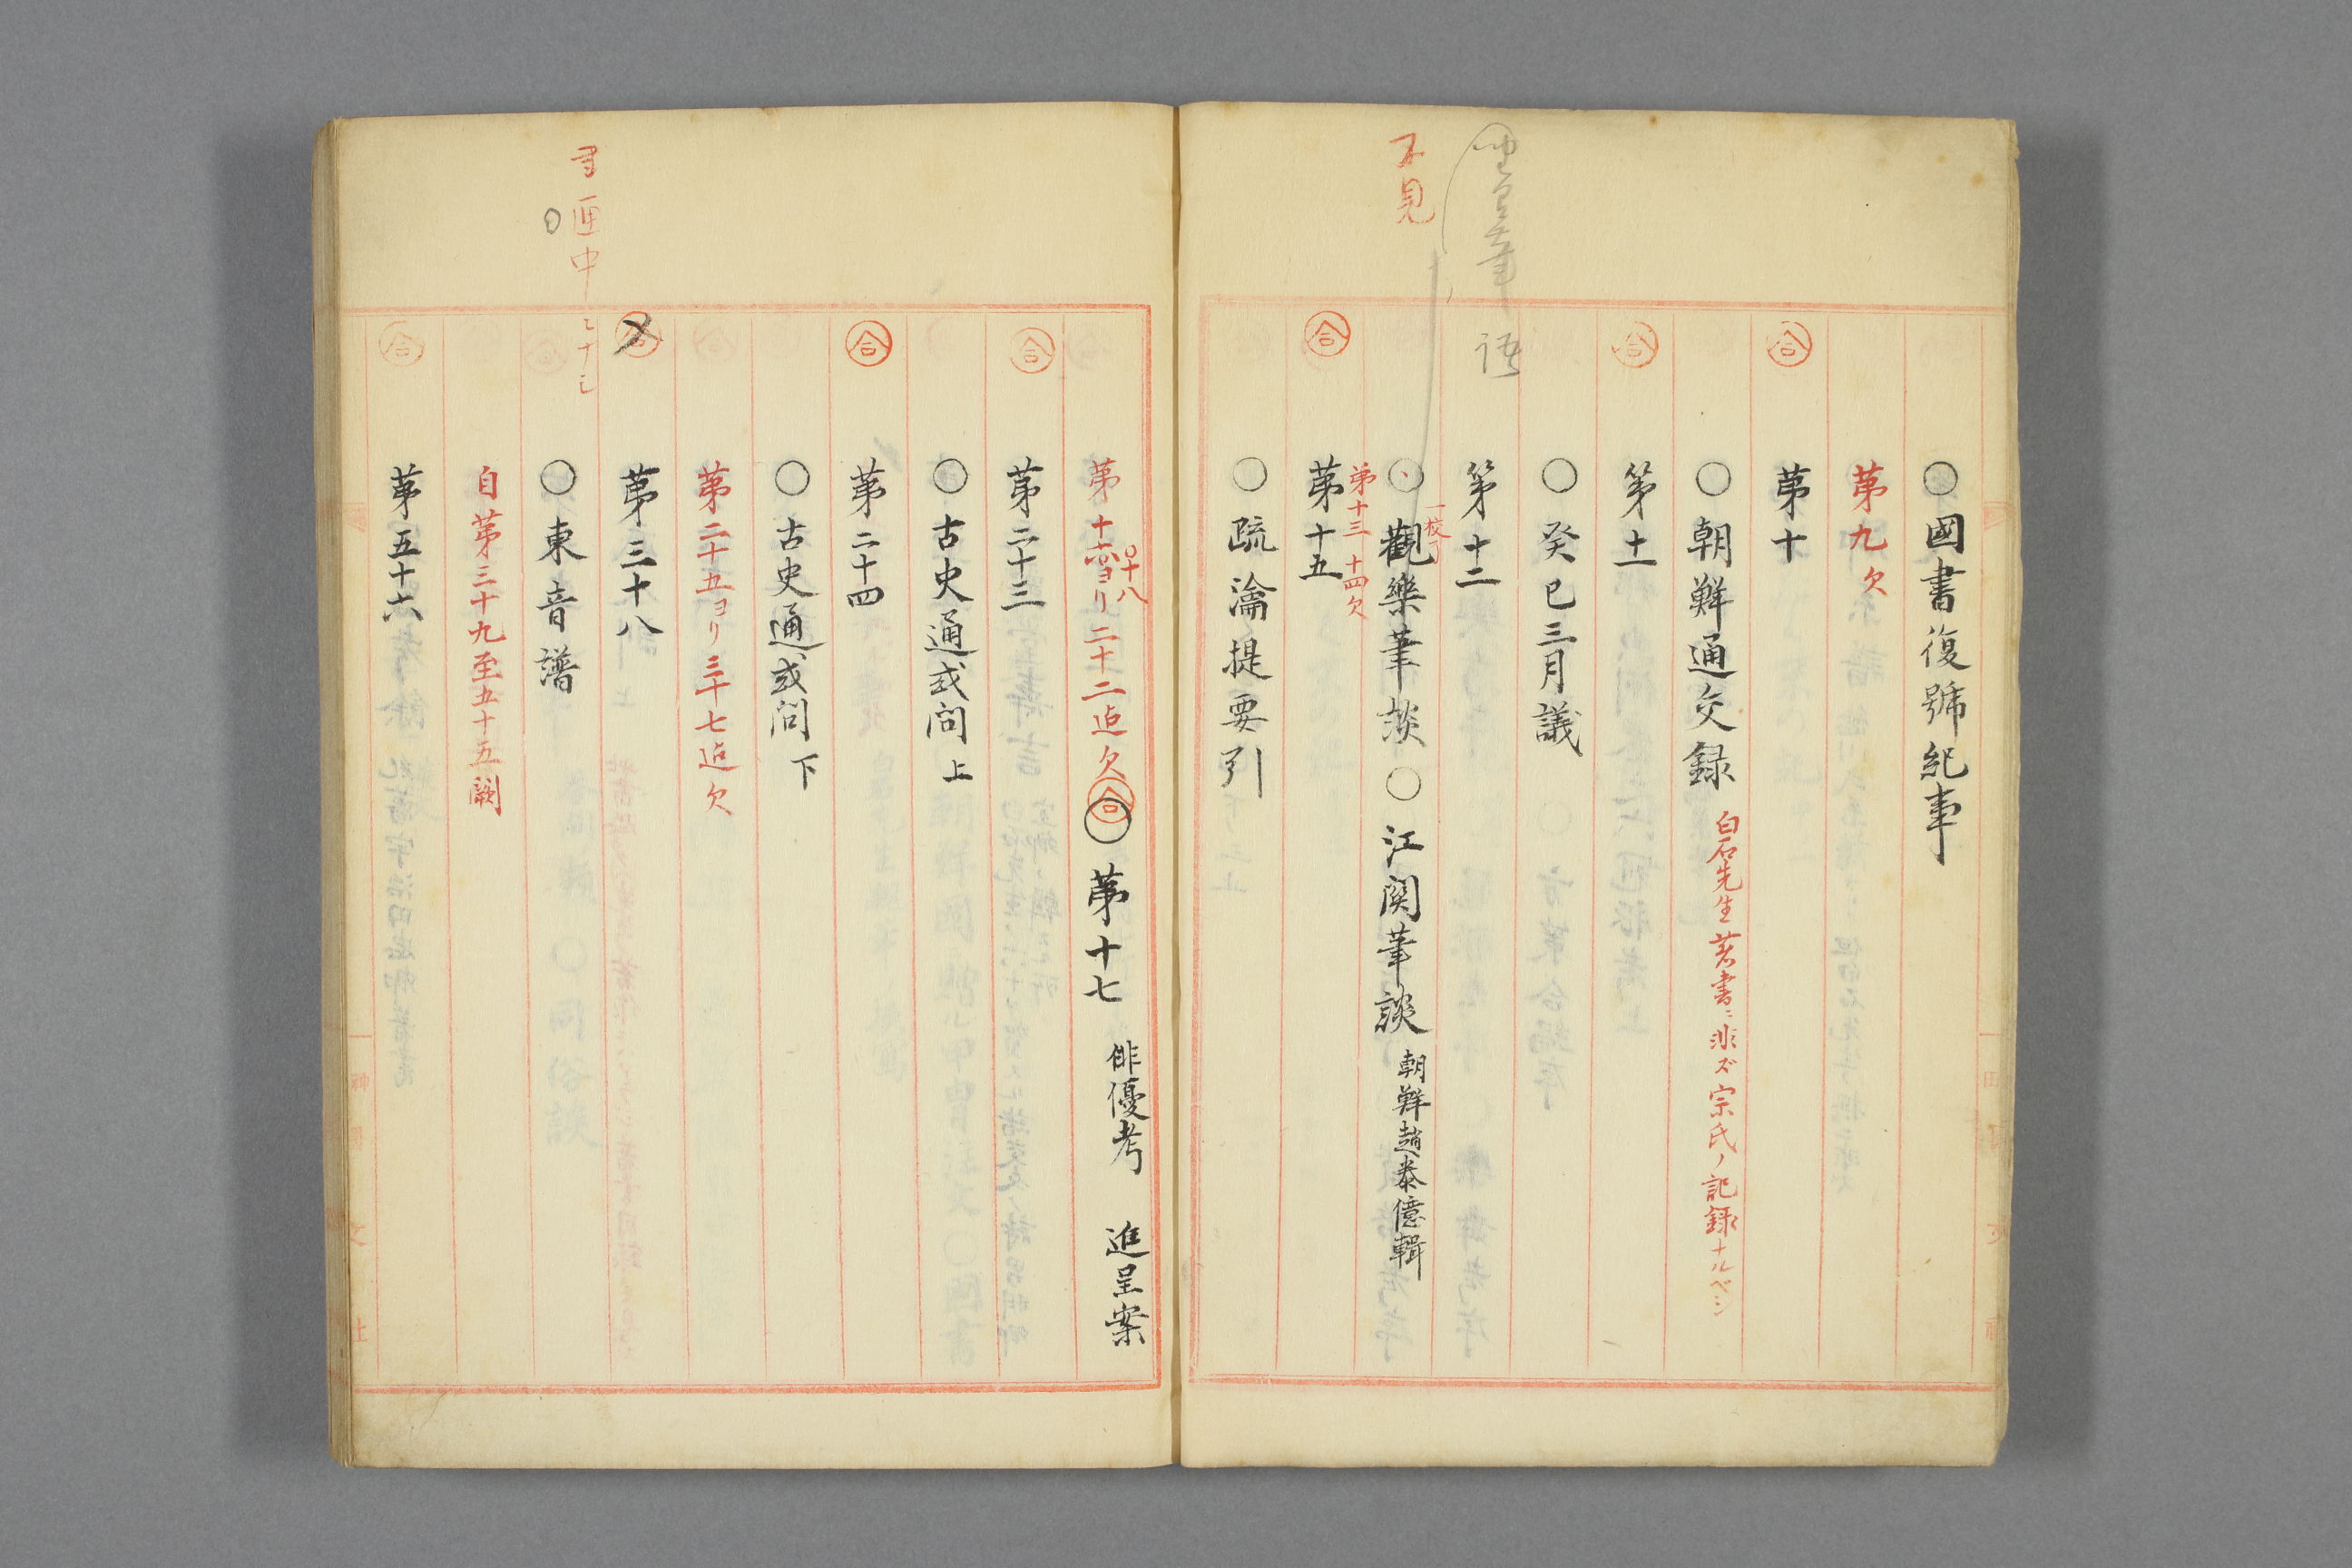 ○國書復號紀事
第九欠
第十
○朝鮮通交録 白石先生著書ニ非ズ宗氏ノ記録ナルベシ
第十一
○癸巳三月議
第十二
一校了
○觀樂筆談○江関筆談 朝鮮趙泰億輯
不見
第十三 十四欠
第十五
○疏瀹提要引
○十八
第十六ヨリ二十二迠欠 合 ○第十七 俳優考 進呈案
第二十三
○古史通或問 上
第二十四
○古史通或問 下
第二十五ヨリ三十七迠欠
第三十八
匣中
○東音譜
自第三十九至五十五闕
第五十六
合
合
合
合
合
合
合